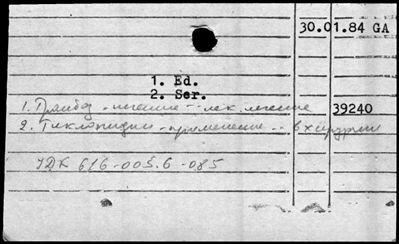 30.01.84 GA
1. Ed.
2. Ser.
1. Тромбоз - лечение -- лек. лечение 39240
2. Тиклопидин - применение -- в хирургии
УДК 616-005.6-085